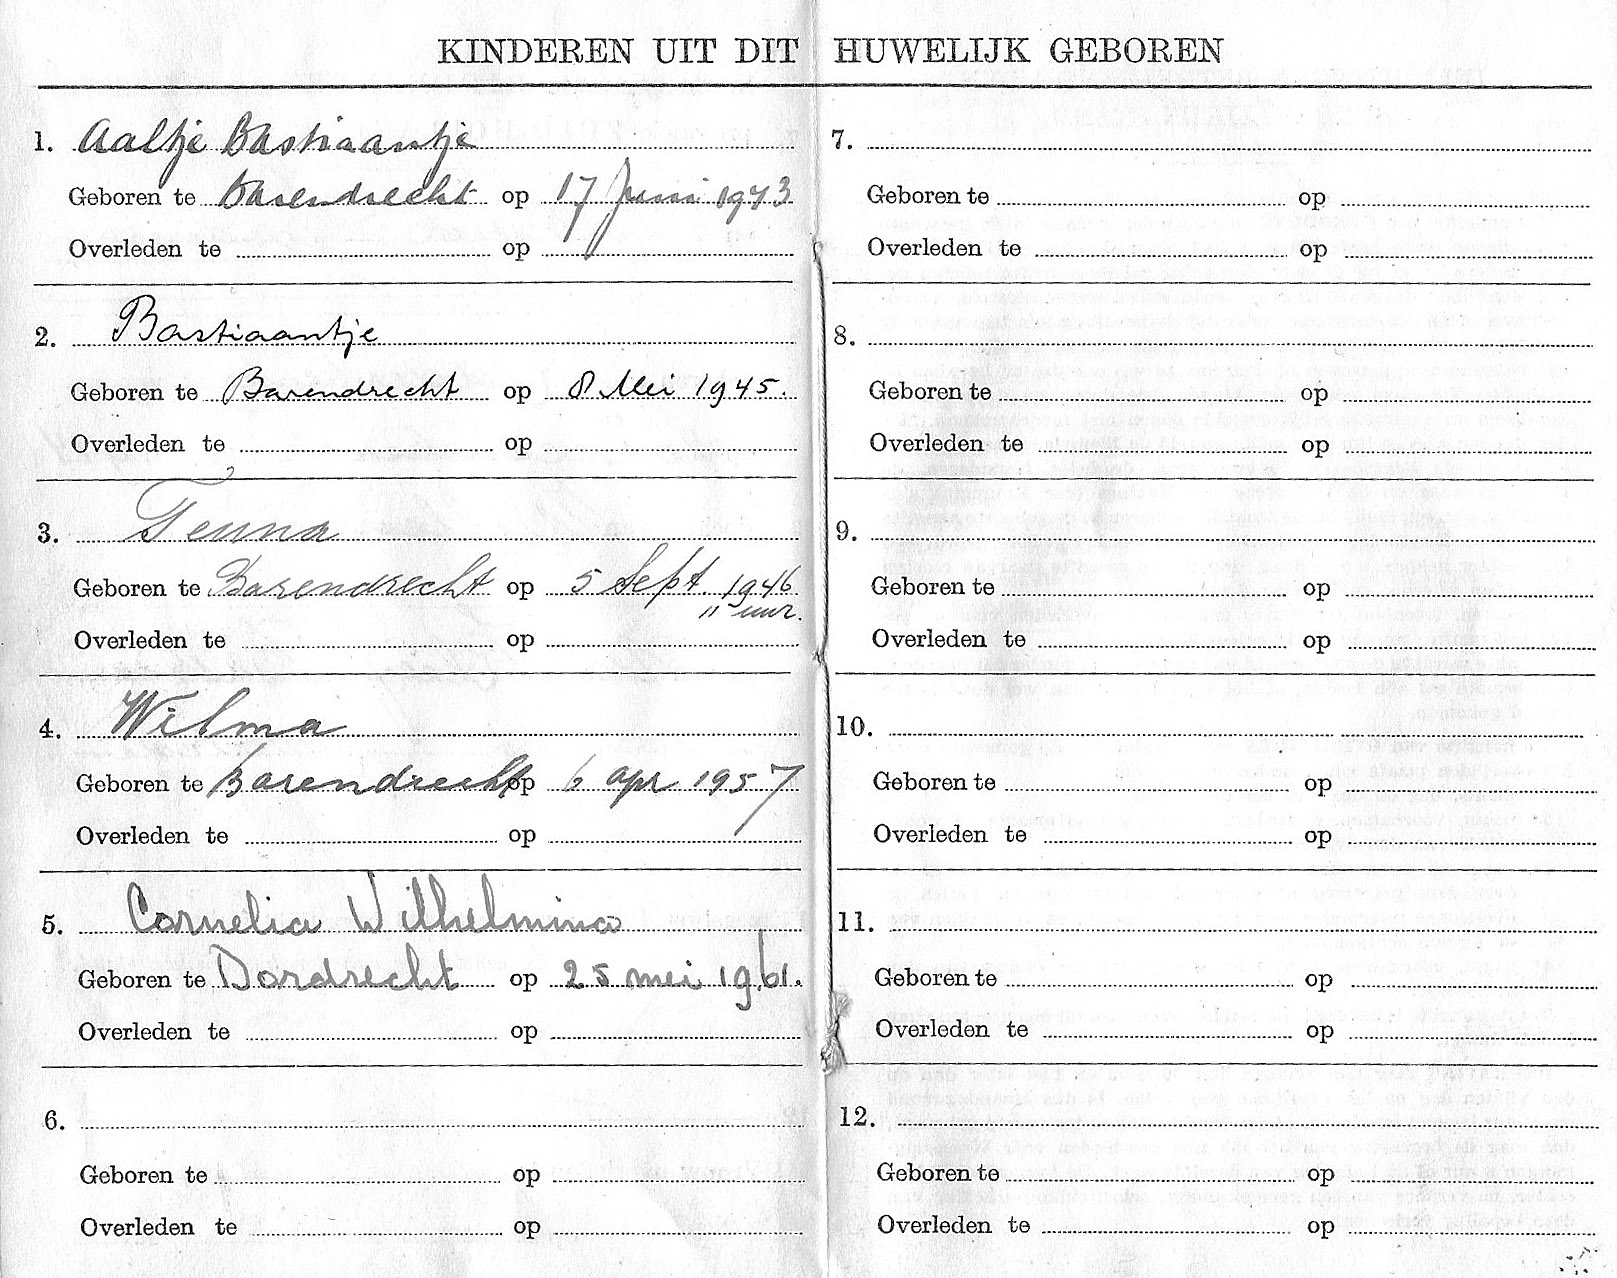 KINDEREN UIT DIT HUWELIJK GEBOREN
1. Aaltje Bastiaantje
Geboren te Barendrecht op 17 Juni 1943
Overleden te op
2. Bastiaantje
Geboren te Barendrecht op 8 Mei 1945.
Overleden te op
3. Teuna
Geboren te Barendrecht op 5 Sept. 1946
11 uur.
Overleden te op
4. Wilma
Geboren te Barendrecht op 6 apr 1957
Overleden te op
5. Cornelia Wilhelmina
Geboren te Dordrecht op 25 mei 1961.
Overleden te op
6.
Geboren te op
Overleden te op
7.
Geboren te op
Overleden te op
8.
Geboren te op
Overleden te op
9.
Geboren te op
Overleden te op
10.
Geboren te op
Overleden te op
11.
Geboren te op
Overleden te op
12.
Geboren te op
Overleden te op